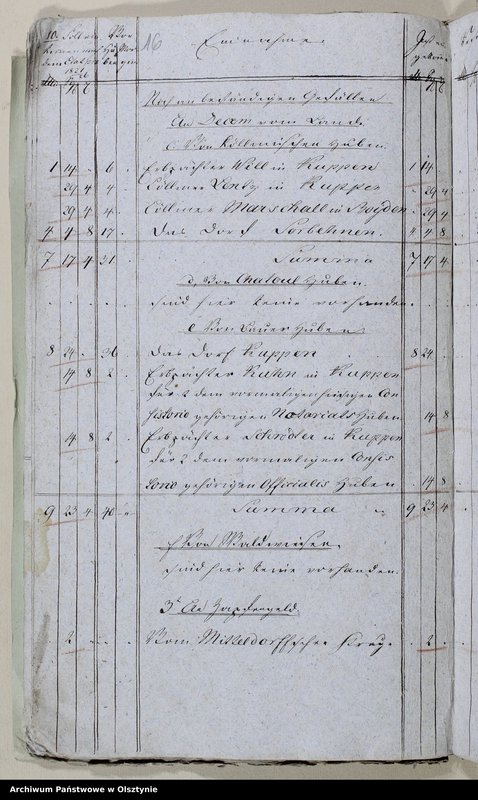 16
Einnahme.
Noch an beständigen Gefällen
An Decem vom Lande.
c, Von Cöllmischen Huben.
1 14 . 6 . Erbpächter Will in Kuppen 1 14 .
. 29 4 4 . Cöllmer in Kuppen . 29 4
. 29 4 4 . Cöllmer Marschall in . 29 4
4 4 8 17 . Das Dorf Sorbehnen. 4 4 8
7 17 4 31 . Summa 7 17 4
d, Von Chatoul Huben.
sind hier keine vorhanden.
e Von Bauer Huben
8 24 . 36 Das Dorf Kuppen 8 24 .
. 14 8 2 . Erbpächter Kuhn in Kuppen
für 2 dem vormaligen Con
sistorio gehörigen Notariats Huben . 14 8
. 14 8 2 . Erbpächter Schröder in Kuppen
für 2 dem vormaligen Consis
torio gehörigen Officialis Huben . 14 8
9 23 4 40 Summa 9 23 4
f Von Waldwiesen.
sind hier keine vorhanden.
3, An Zapfengeld.
. 2 . . Vom Mitteldorffschen Krug. . 2 .
Archiwum Państwowe w Olsztynie